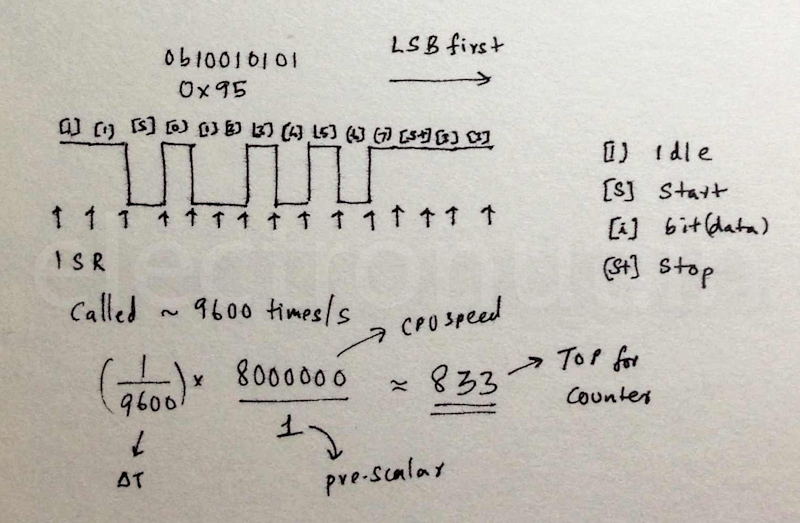 0b10010101
0x95
LSB first
[I] [I] [S] [0] [1] [2] [3] [4] [5] [6] [7] [St] [I] [I]
[I] Idle
[S] Start
[i] bit(data)
[St] Stop
ISR
Called ~ 9600 times/s
CPU speed
(1/9600) × 8000000/1 ≈ 833
TOP for
counter
ΔT
pre-scalar
electronut.in